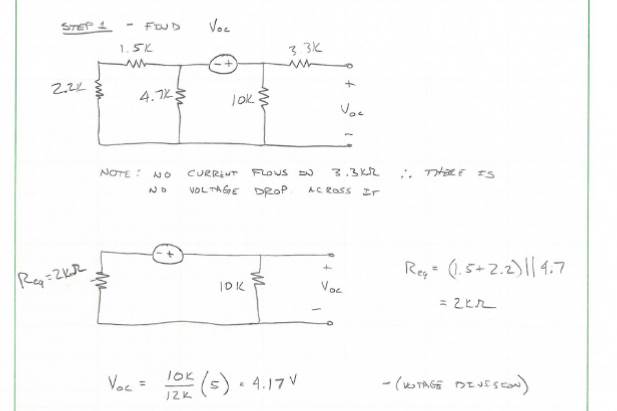 STEP 1 - FIND Voc
1.5K
3.3K
- +
2.2K
4.7K
10K
+
Voc
-
NOTE: NO CURRENT FLOWS IN 3.3KΩ ∴ THERE IS
NO VOLTAGE DROP ACROSS IT
- +
Req=2KΩ
10K
+
Voc
-
Req = (1.5+2.2)||4.7
= 2KΩ
Voc = 10K/12K (5) = 4.17 V - (VOLTAGE DIVISION)